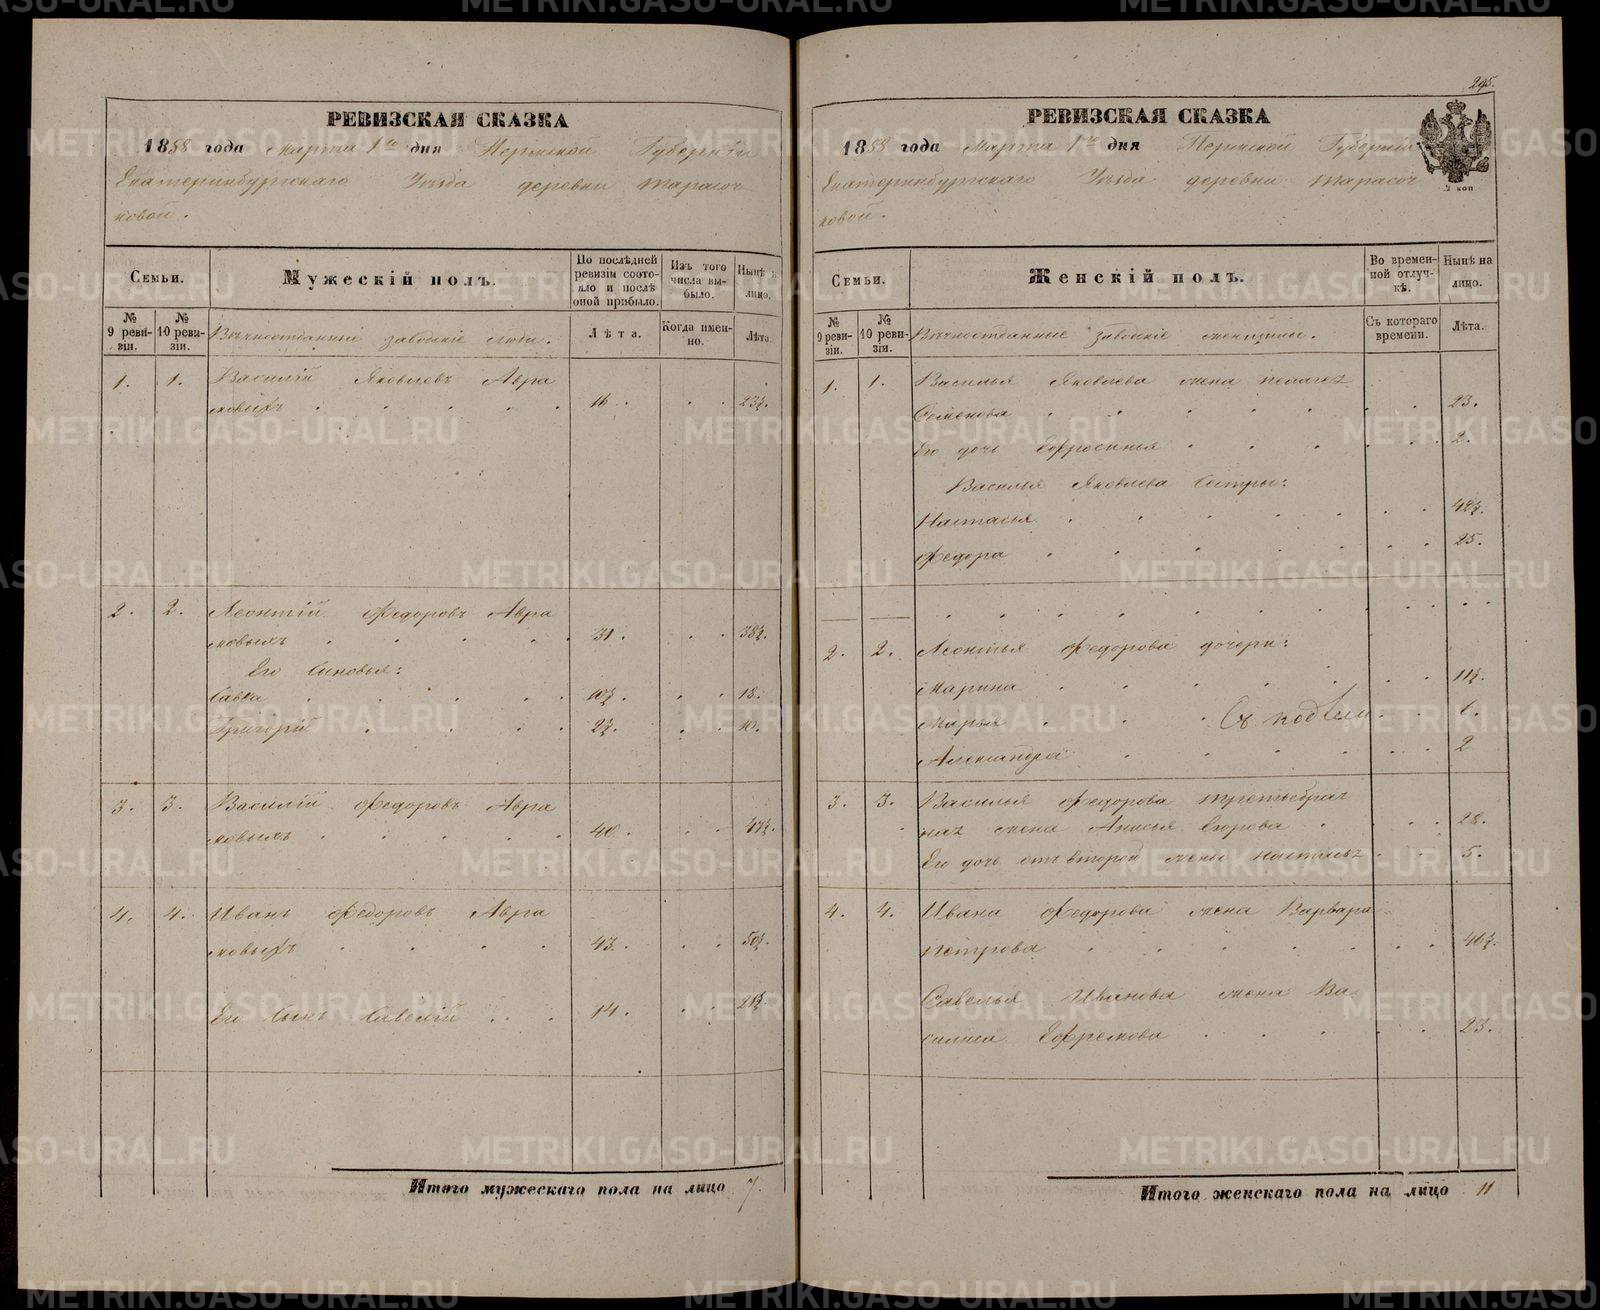 295.
РЕВИЗСКАЯ СКАЗКА
1858 года Марта 1го дня Пермской Губерніи
Екатеринбургскаго Уѣзда деревни Тарасоч
ковой.
Семьи.
Мужескій полъ.
По послѣдней ревизіи состояло и послѣ оной прибыло.
Изъ того числа выбыло.
Нынѣ на лицо.
№ 9 ревизіи.
№ 10 ревизіи.
Вѣчноотданныи заводскіе люди.
Лѣта.
Когда именно.
Лѣта.
1. 1. Василій Яковлевъ Авра
мовыхъ 16. 23½.
2. 2. Леонтій Федоровъ Авра
мовыхъ 31. 38½.
Его сыновья:
Савка 10½. 18.
Григорій 2½. 10.
3. 3. Василій Федоровъ Авра
мовыхъ 40. 47½.
4. 4. Иванъ Федоровъ Авра
мовыхъ 43. 50½.
Его сынъ Савелій 14. 21½.
Итого мужескаго пола на лицо 7.
РЕВИЗСКАЯ СКАЗКА
1858 года Марта 1го дня Пермской Губерніи
Екатеринбургскаго Уѣзда деревни Тарасоч
ковой.
коп
Семьи.
Женскій полъ.
Во временной отлучкѣ.
Нынѣ на лицо.
№ 9 ревизіи.
№ 10 ревизіи.
Вѣчноотданные заводскіе женщины.
Съ котораго времени.
Лѣта.
1. 1. Василья Яковлева жена Пелагея
Семенова 23.
Его дочь Ефросинья 2.
Василья Яковлева сестры:
Настасья 42½.
Федора 25.
2. 2. Леонтья Федорова дочери:
Марина 11½.
Марья 6.
Александра 2
3. 3. Василья Федорова третьебрач
ная жена Анисья Егорова 28.
Его дочь отъ второй жены Настасья 5.
4. 4. Ивана Федорова жена Варвара
Петрова 46½.
Савелья Иванова жена Ва
силиса Ефремова 23.
Итого женскаго пола на лицо 11
METRIKI.GASO-URAL.RU